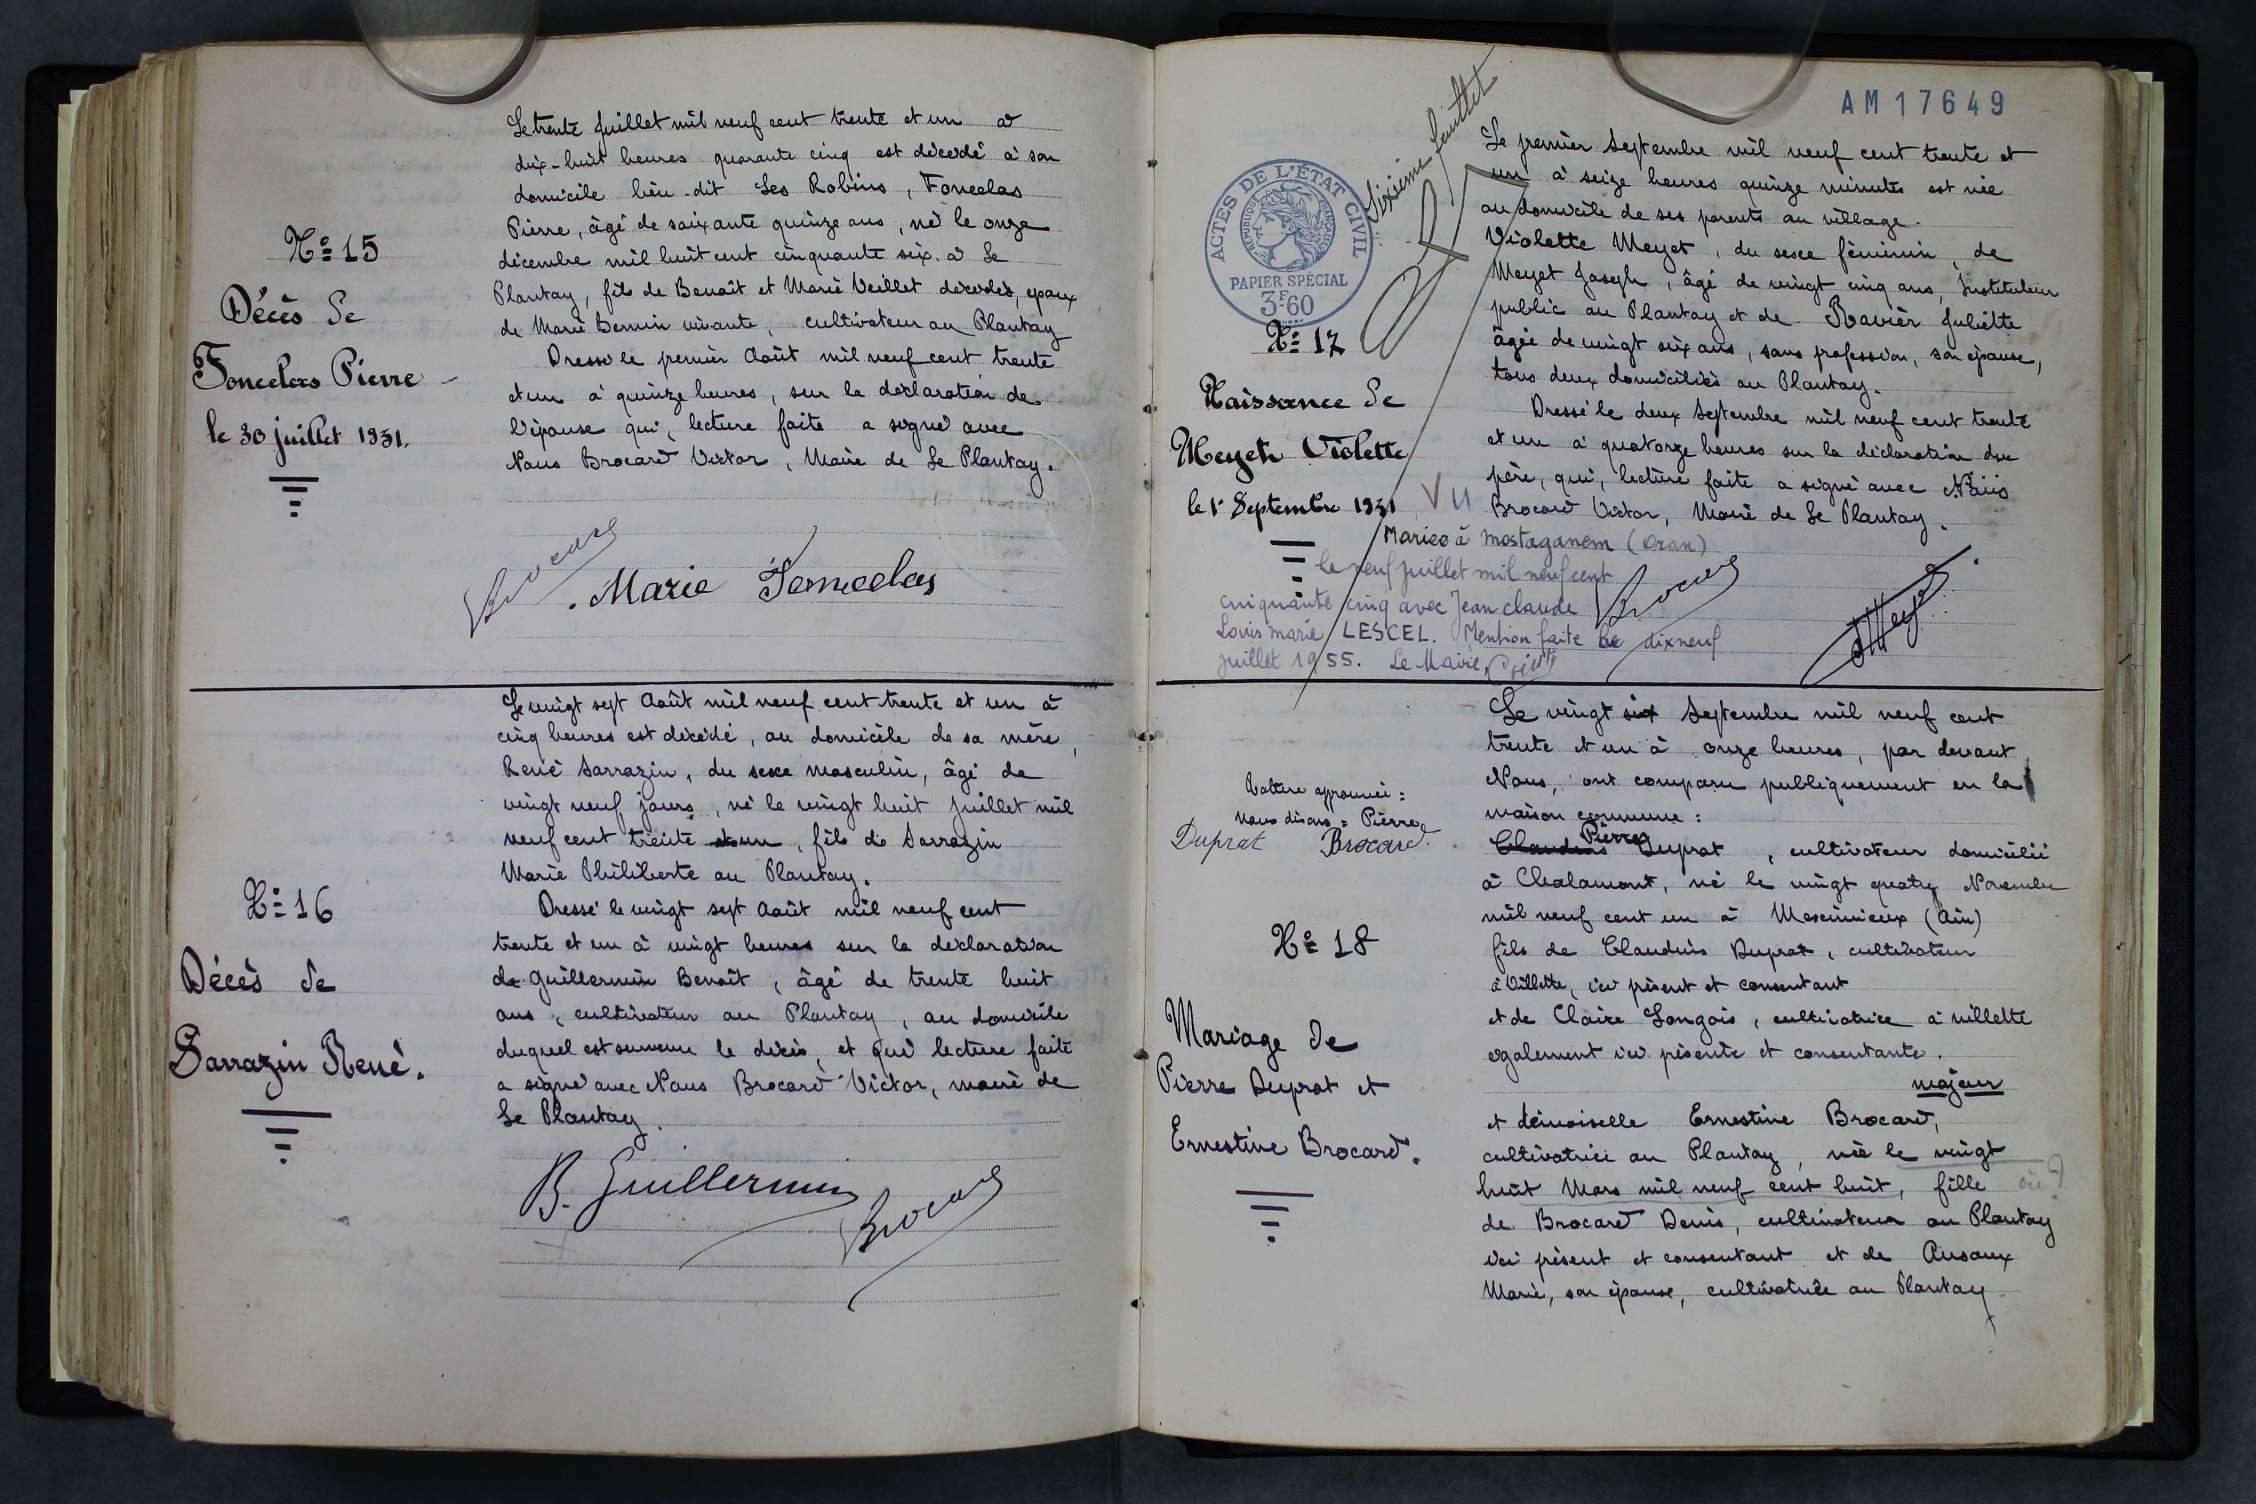 Nº 15
Décès de
Foncelas Pierre
le 30 juillet 1931.
Le trente Juillet mil neuf cent trente et un à
dix-huit heures quarante cinq est décédé à son
domicile lieu-dit Les Robins, Foncelas
Pierre, âgé de soixante quinze ans, né le onze
décembre mil huit cent cinquante six à Le
Plantay, fils de Benoît et Marie Veillet décédés, époux
de Marie vivante, cultivateur au Plantay
Dressé le premier Août mil neuf cent trente
et un à quinze heures, sur la déclaration de
l'épouse qui, lecture faite a signé avec
Nous Brocard Victor, Maire de Le Plantay.
Brocard
Marie Foncelas
Nº 16
Décès de
Sarrazin René.
Le vingt sept Août mil neuf cent trente et un à
cinq heures est décédé, au domicile de sa mère,
René Sarrazin, du sexe masculin, âgé de
vingt neuf jours, né le vingt huit Juillet mil
neuf cent trente et un, fils de Sarrazin
Marie Philiberte au Plantay.
Dressé le vingt sept Août mil neuf cent
trente et un à vingt heures sur la déclaration
de Guillermin Benoît, âgé de trente huit
ans, cultivateur au Plantay, au domicile
duquel est survenu le décès, et qui lecture faite
a signé avec Nous Brocard Victor, maire de
Le Plantay.
B. Guillermin
Brocard
AM17649
Sixième feuillet
ACTES DE L'ÉTAT CIVIL
RÉPUBLIQUE FRANÇAISE
PAPIER SPÉCIAL
3F60
Nº 17
Naissance de
Meyet Violette
le 1r Septembre 1931
VU
Le premier Septembre mil neuf cent trente et
un à seize heures quinze minutes est née
au domicile de ses parents au village.
Violette Meyet, du sexe féminin, de
Meyet Joseph, âgé de vingt cinq ans, Instituteur
public au Plantay et de Ravier Juliette
âgée de vingt six ans, sans profession, son épouse,
tous deux domiciliés au Plantay.
Dressé le deux Septembre mil neuf cent trente
et un à quatorze heures sur la déclaration du
père, qui, lecture faite a signé avec Nous
Brocard Victor, Maire de Le Plantay.
Mariée à Mostaganem (Oran)
le neuf juillet mil neuf cent
cinquante cinq avec Jean Claude
Louis Marie LESCEL. Mention faite le dixneuf
juillet 1955. Le Maire,
Brocard
JMeyet
Rature approuvée:
nous disons = Pierre
Duprat Brocard
Nº 18
Mariage de
Pierre Duprat et
Ernestine Brocard.
Le vingt six Septembre mil neuf cent
trente et un à onze heures, par devant
Nous, ont comparu publiquement en la
maison commune:
Pierre
Claudius Duprat, cultivateur domicilié
à Chalamont, né le vingt quatre Novembre
mil neuf cent un à Meximieux (Ain)
fils de Claudius Duprat, cultivateur
à Villette, ici présent et consentant
et de Claire Longois, cultivatrice à Villette
également ici présente et consentante.
majeur
et demoiselle Ernestine Brocard,
cultivatrice au Plantay, née le vingt
huit Mars mil neuf cent huit, fille où?
de Brocard Denis, cultivateur au Plantay
ici présent et consentant et de Ansaux
Marie, son épouse, cultivatrice au Plantay